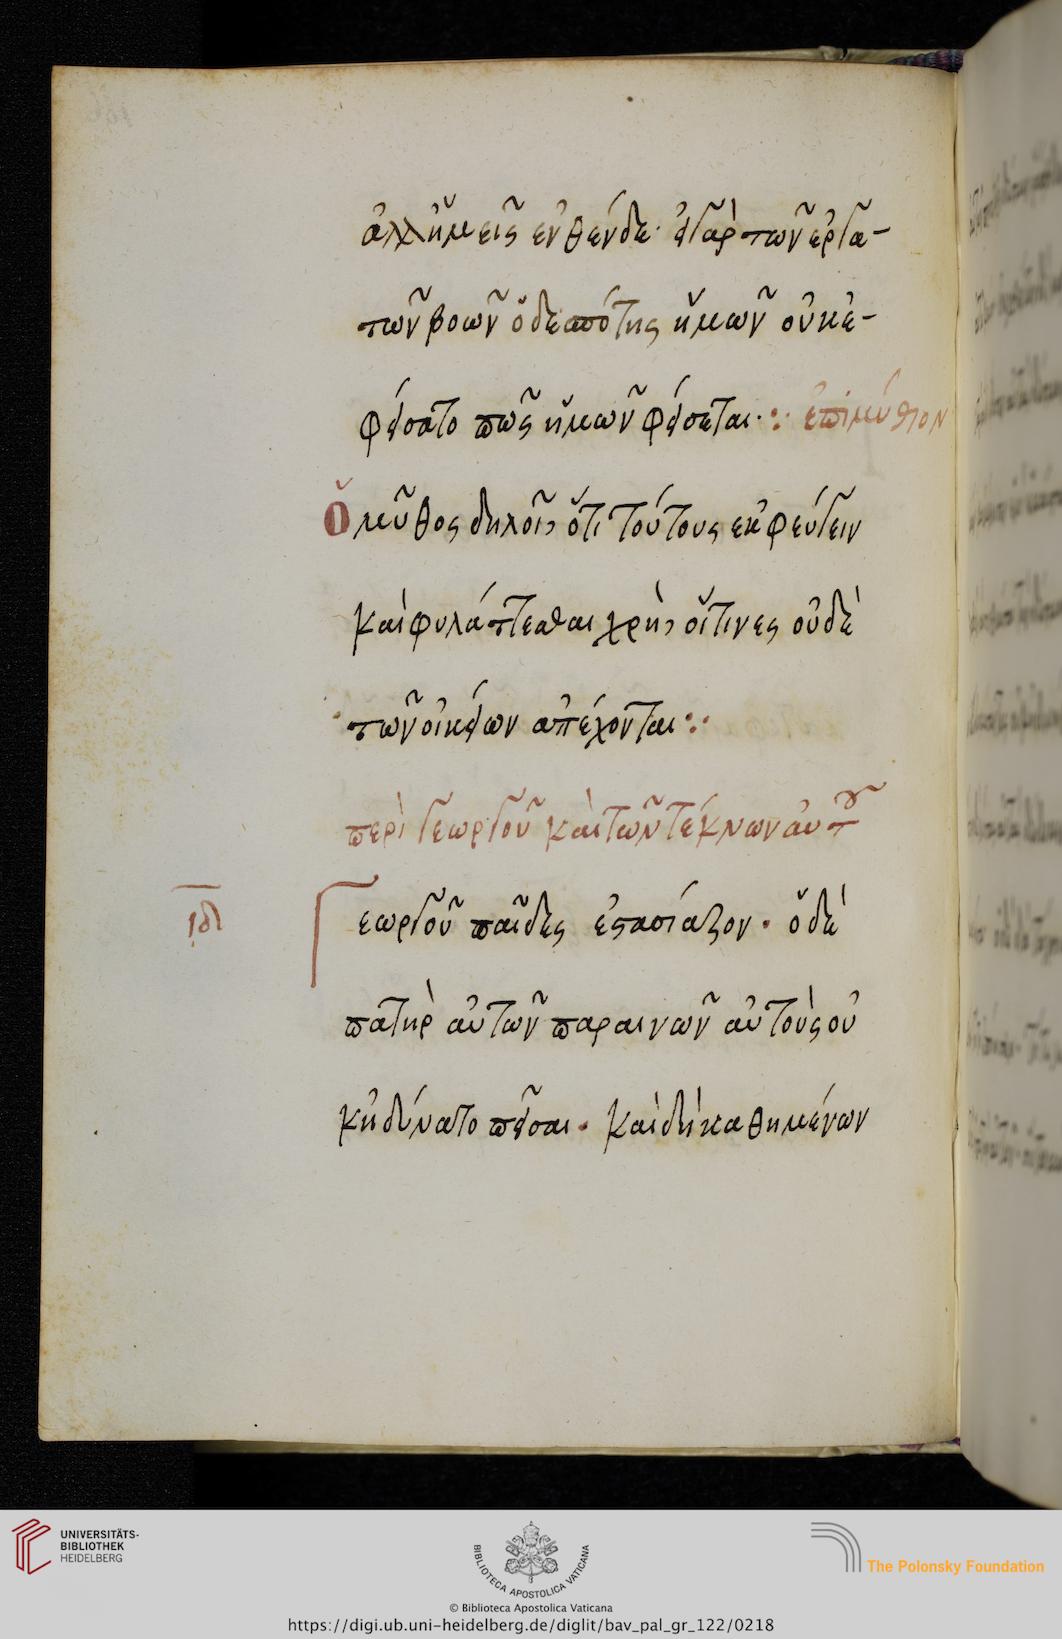 ἀλλ' ἡμεῖς ἐνθένδε· εἰ γὰρ τῶν ἐργα-
τῶν βοῶν ὁ δεσπότης ἡμῶν οὐκ ἐ-
φείσατο πῶς ἡμῶν φείσεται· : ἐπιμύθιον
Ὁ μῦθος δηλοῖ, ὅτι τούτους ἐκφεύγειν
καὶ φυλάττεσθαι χρὴ, οἵτινες οὐδὲ
τῶν οἰκείων ἀπέχονται :·
περὶ γεωργοῦ καὶ τῶν τέκνων αὐτοῦ
ιδ
Γεωργοῦ παῖδες ἐστασίαζον · ὁ δὲ
πατὴρ αὐτῶν παραινῶν αὐτοὺς οὐ
κ ἠδύνατο πεῖσαι · καὶ δὴ καθημένων
UNIVERSITÄTS-
BIBLIOTHEK
HEIDELBERG
BIBLIOTECA APOSTOLICA VATICANA
The Polonsky Foundation
© Biblioteca Apostolica Vaticana
https://digi.ub.uni-heidelberg.de/diglit/bav_pal_gr_122/0218